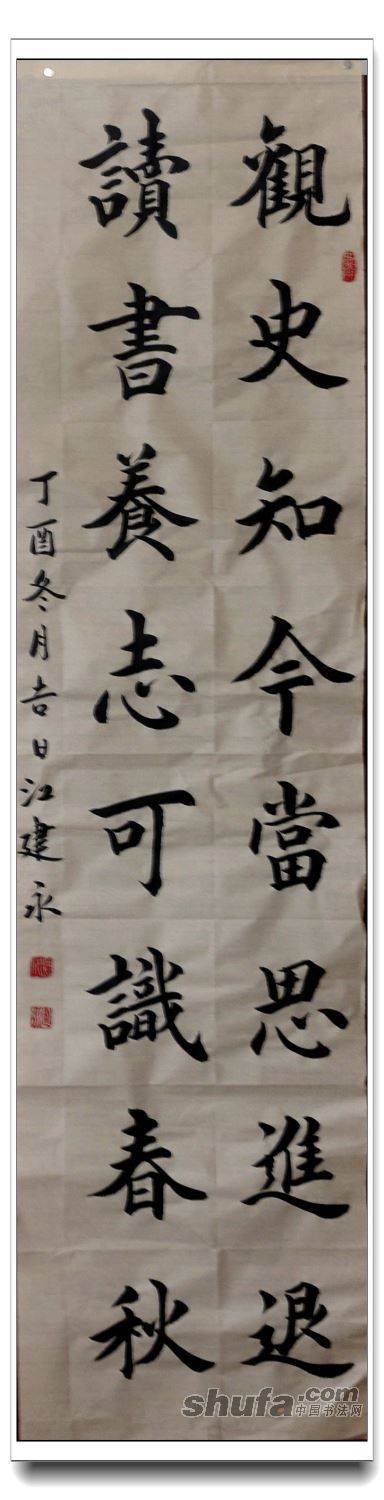 觀史知今當思進退
讀書養志可識春秋
丁酉冬月吉日江建永
shufa.com
中国书法网